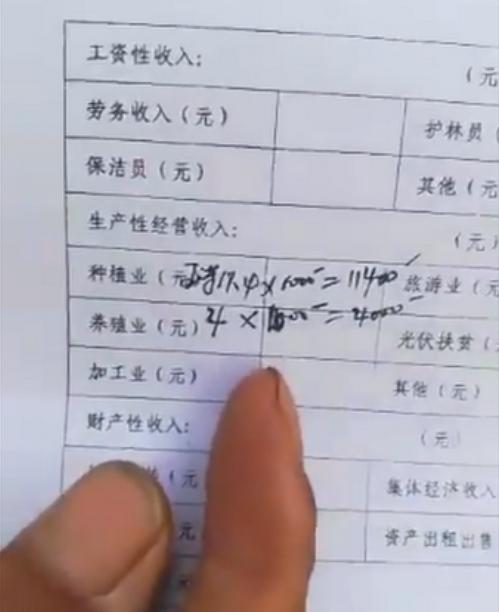 工资性收入: (元
劳务收入(元) 护林员(
保洁员(元) 其他(元
生产性经营收入: (元)
种植业(元 ×1000=11400 旅游业(元
养殖业(元) 4× =4000 光伏扶贫(
加工业(元) 其他(元)
财产性收入: (元)
(元 集体经济收入
元) 资产出租出售
元)